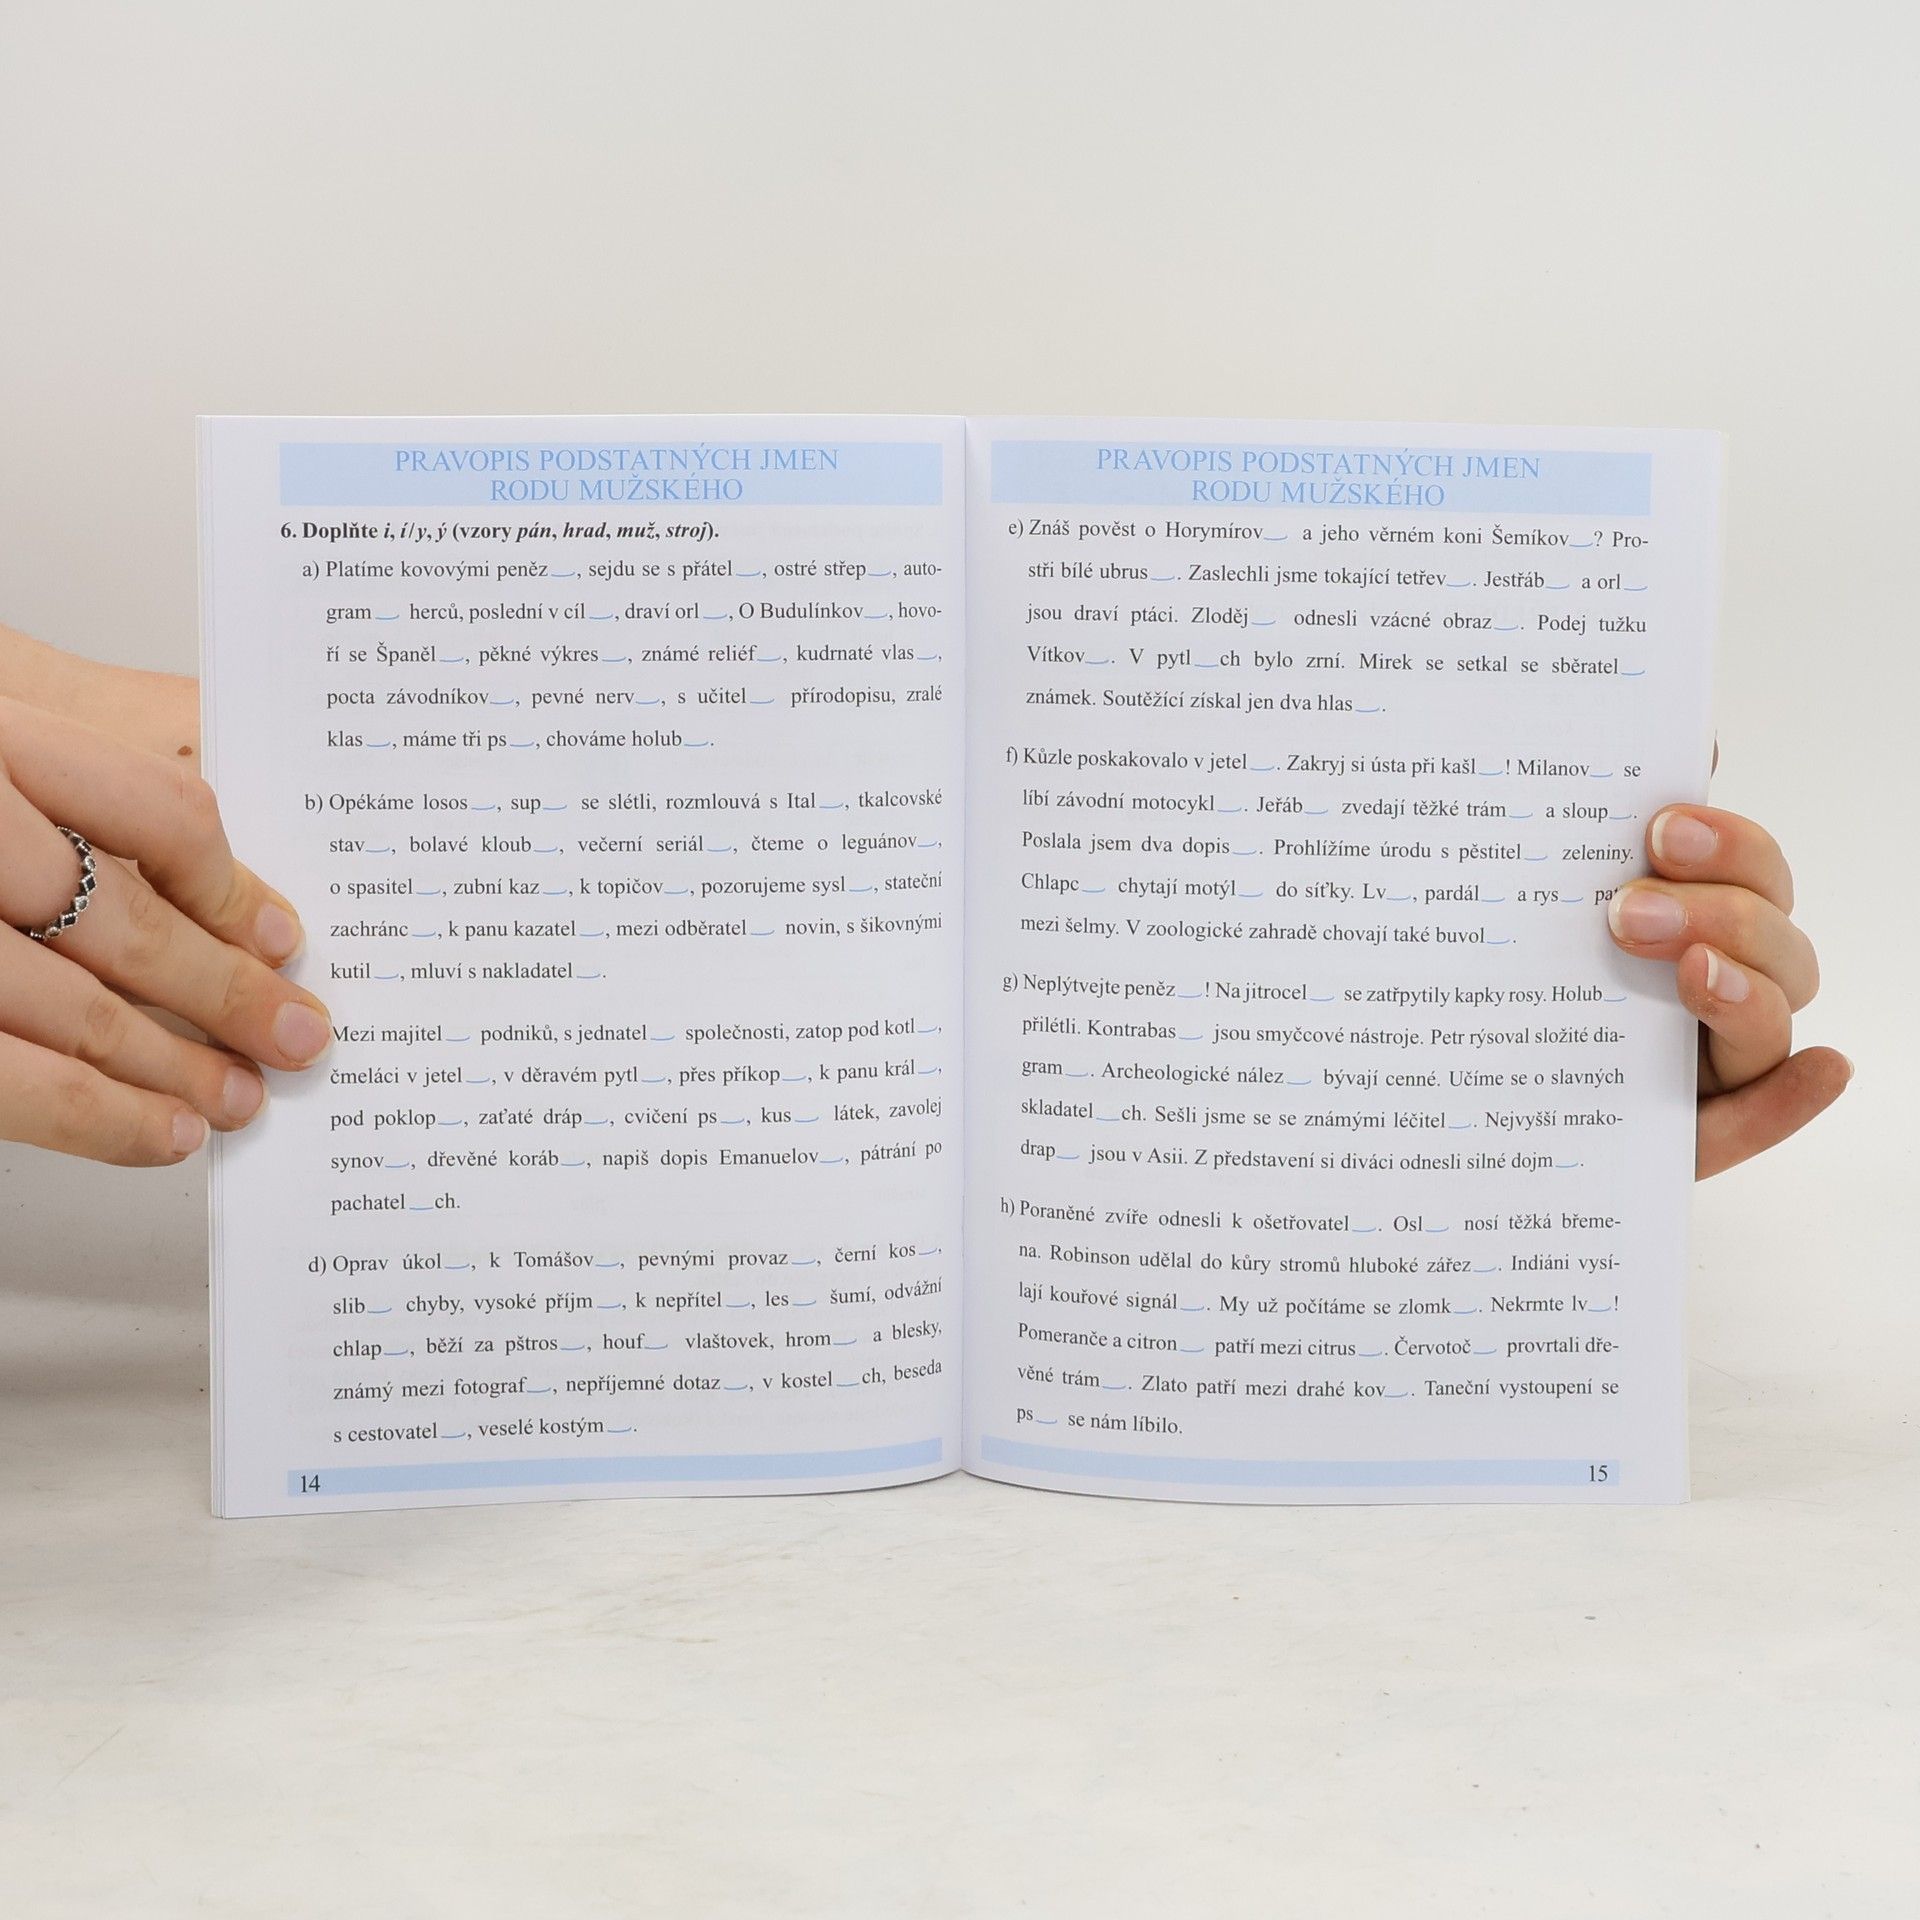 PRAVOPIS PODSTATNÝCH JMEN
RODU MUŽSKÉHO
6. Doplňte i, í/y, ý (vzory pán, hrad, muž, stroj).
a) Platíme kovovými peněz__, sejdu se s přátel__, ostré střep__, auto-
gram__ herců, poslední v cíl__, draví orl__, O Budulínkov__, hovo-
ří se Španěl__, pěkné výkres__, známé reliéf__, kudrnaté vlas__,
pocta závodníkov__, pevné nerv__, s učitel__ přírodopisu, zralé
klas__, máme tři ps__, chováme holub__.
b) Opékáme losos__, sup__ se slétli, rozmlouvá s Ital__, tkalcovské
stav__, bolavé kloub__, večerní seriál__, čteme o leguánov__,
o spasitel__, zubní kaz__, k topičov__, pozorujeme sysl__, stateční
zachránc__, k panu kazatel__, mezi odběratel__ novin, s šikovnými
kutil__, mluví s nakladatel__.
Mezi majitel__ podniků, s jednatel__ společnosti, zatop pod kotl__,
čmeláci v jetel__, v děravém pytl__, přes příkop__, k panu král__,
pod poklop__, zaťaté dráp__, cvičení ps__, kus__ látek, zavolej
synov__, dřevěné koráb__, napiš dopis Emanuelov__, pátrání po
pachatel__ch.
d) Oprav úkol__, k Tomášov__, pevnými provaz__, černí kos__,
slib__ chyby, vysoké příjm__, k nepřítel__, les__ šumí, odvážní
chlap__, běží za pštros__, houf__ vlaštovek, hrom__ a blesky,
známý mezi fotograf__, nepříjemné dotaz__, v kostel__ch, beseda
s cestovatel__, veselé kostým__.
14
PRAVOPIS PODSTATNÝCH JMEN
RODU MUŽSKÉHO
e) Znáš pověst o Horymírov__ a jeho věrném koni Šemíkov__? Pro-
stři bílé ubrus__. Zaslechli jsme tokající tetřev__. Jestřáb__ a orl__
jsou draví ptáci. Zloděj__ odnesli vzácné obraz__. Podej tužku
Vítkov__. V pytl__ch bylo zrní. Mirek se setkal se sběratel__
známek. Soutěžící získal jen dva hlas__.
f) Kůzle poskakovalo v jetel__. Zakryj si ústa při kašl__! Milanov__ se
líbí závodní motocykl__. Jeřáb__ zvedají těžké trám__ a sloup__.
Poslala jsem dva dopis__. Prohlížíme úrodu s pěstitel__ zeleniny.
Chlapc__ chytají motýl__ do síťky. Lv__, pardál__ a rys__
mezi šelmy. V zoologické zahradě chovají také buvol__.
g) Neplýtvejte peněz__! Na jitrocel__ se zatřpytily kapky rosy. Holub__
přilétli. Kontrabas__ jsou smyčcové nástroje. Petr rýsoval složité dia-
gram__. Archeologické nález__ bývají cenné. Učíme se o slavných
skladatel__ch. Sešli jsme se se známými léčitel__. Nejvyšší mrako-
drap__ jsou v Asii. Z představení si diváci odnesli silné dojm__.
h) Poraněné zvíře odnesli k ošetřovatel__. Osl__ nosí těžká břeme-
na. Robinson udělal do kůry stromů hluboké zářez__. Indiáni vysí-
lají kouřové signál__. My už počítáme se zlomk__. Nekrmte lv__!
Pomeranče a citron__ patří mezi citrus__. Červotoč__ provrtali dře-
věné trám__. Zlato patří mezi drahé kov__. Taneční vystoupení se
ps__ se nám líbilo.
15